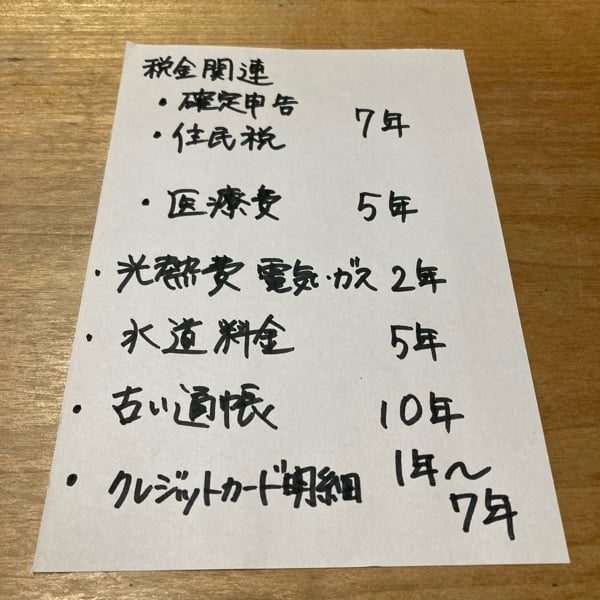 税金関連
・確定申告
・住民税 7年
・医療費 5年
・光熱費 電気・ガス 2年
・水道料金 5年
・古い通帳 10年
・クレジットカード明細 1年〜
7年